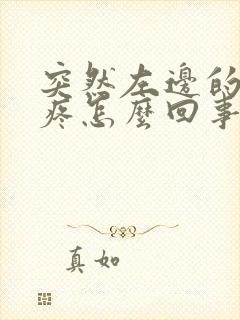 突然左邊的
疼怎麼回事
真如